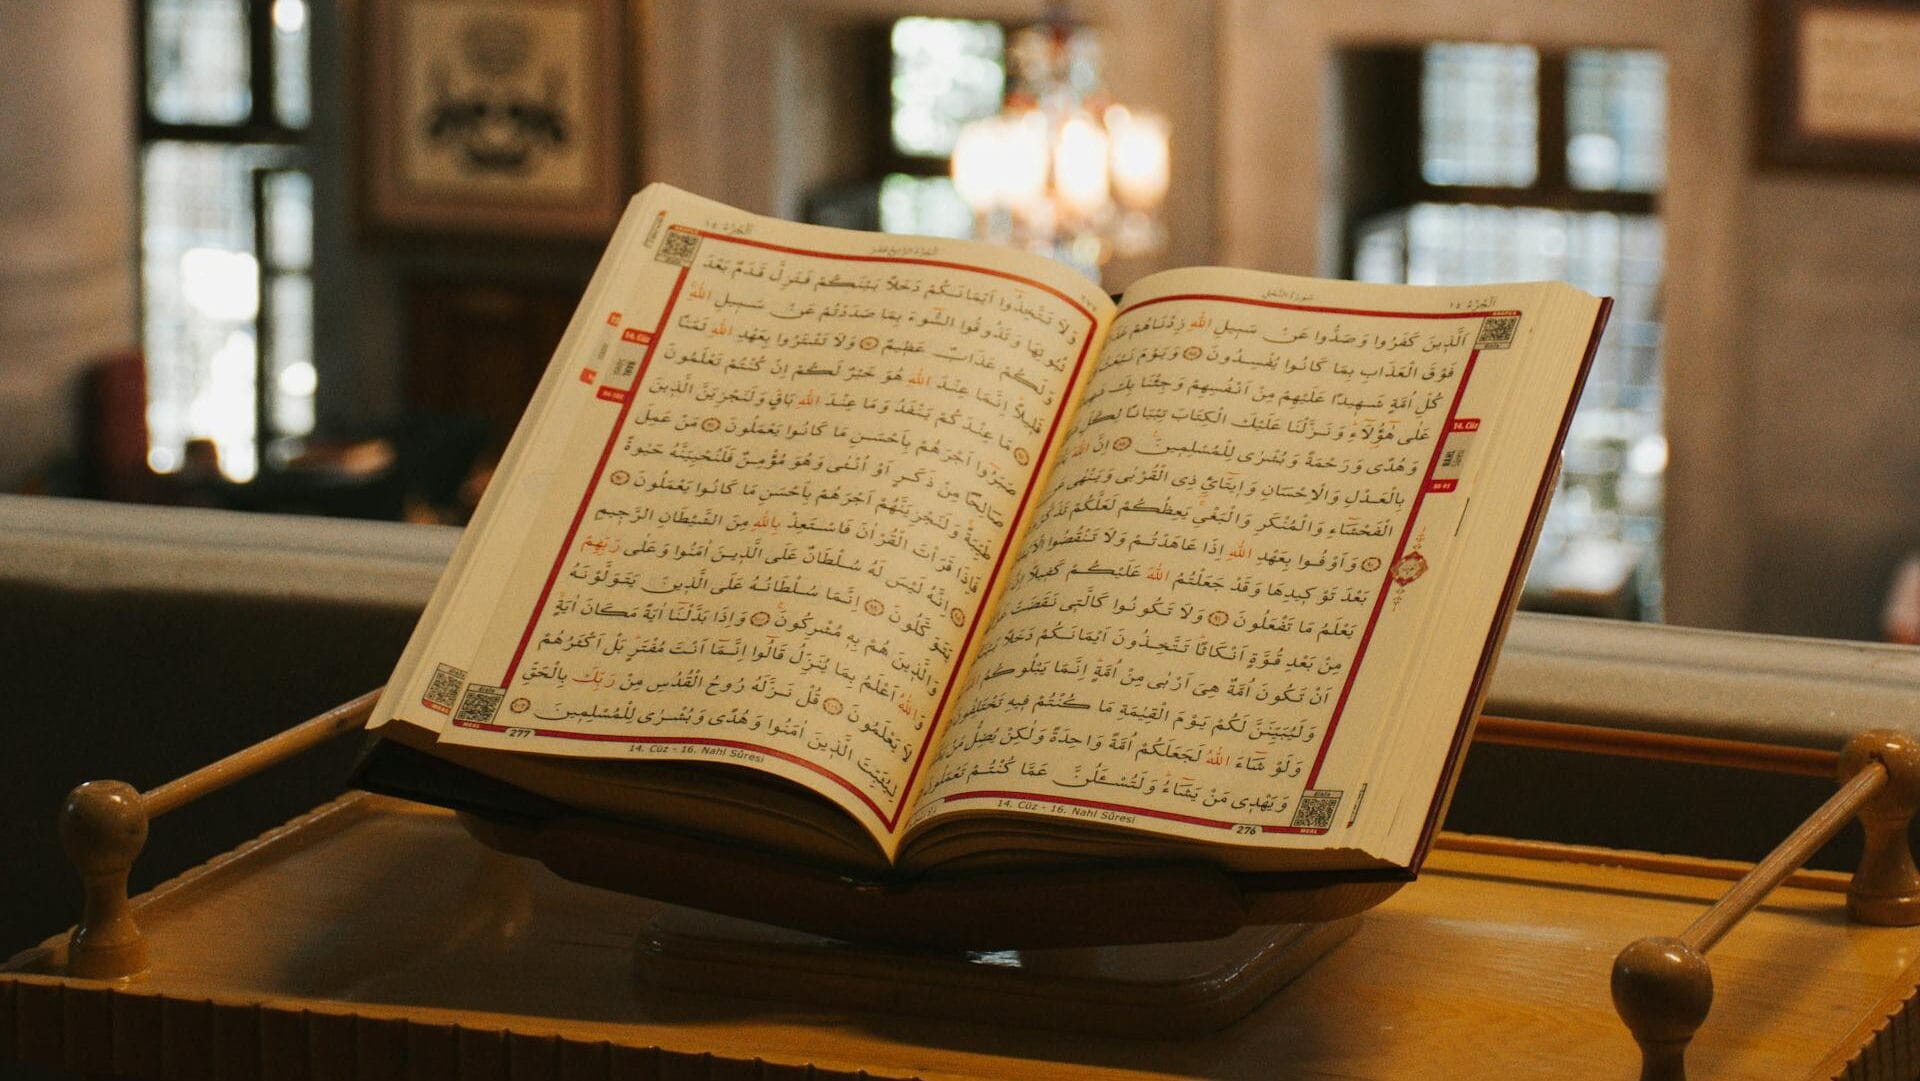 سورة النحل
الجزء ١٤
اَلَّذ۪ينَ كَفَرُوا وَصَدُّوا عَنْ سَب۪يلِ اللّٰهِ زِدْنَاهُمْ عَذَابًا
فَوْقَ الْعَذَابِ بِمَا كَانُوا يُفْسِدُونَ ﴿٨٨﴾ وَيَوْمَ نَبْعَثُ
كُلِّ اُمَّةٍ شَه۪يدًا عَلَيْهِمْ مِنْ اَنْفُسِهِمْ وَجِئْنَا بِكَ شَه۪يدًا
عَلٰى هٰٓؤُ۬لَٓاءِ وَنَزَّلْنَا عَلَيْكَ الْكِتَابَ تِبْيَانًا لِكُلِّ
وَهُدًى وَرَحْمَةً وَبُشْرٰى لِلْمُسْلِم۪ينَ ﴿٨٩﴾ اِنَّ اللّٰهَ
بِالْعَدْلِ وَالْاِحْسَانِ وَا۪يتَٓائِ ذِي الْقُرْبٰى وَيَنْهٰى عَنِ
الْفَحْشَٓاءِ وَالْمُنْكَرِ وَالْبَغْيِ يَعِظُكُمْ لَعَلَّكُمْ تَذَكَّرُونَ
﴿٩٠﴾ وَاَوْفُوا بِعَهْدِ اللّٰهِ اِذَا عَاهَدْتُمْ وَلَا تَنْقُضُوا الْاَيْمَانَ
بَعْدَ تَوْك۪يدِهَا وَقَدْ جَعَلْتُمُ اللّٰهَ عَلَيْكُمْ كَف۪يلًا اِنَّ
يَعْلَمُ مَا تَفْعَلُونَ ﴿٩١﴾ وَلَا تَكُونُوا كَالَّت۪ي نَقَضَتْ
مِنْ بَعْدِ قُوَّةٍ اَنْكَاثًا تَتَّخِذُونَ اَيْمَانَكُمْ دَخَلًا بَيْنَكُمْ
اَنْ تَكُونَ اُمَّةٌ هِيَ اَرْبٰى مِنْ اُمَّةٍ اِنَّمَا يَبْلُوكُمُ
وَلَيُبَيِّنَنَّ لَكُمْ يَوْمَ الْقِيٰمَةِ مَا كُنْتُمْ ف۪يهِ تَخْتَلِفُونَ
وَلَوْ شَٓاءَ اللّٰهُ لَجَعَلَكُمْ اُمَّةً وَاحِدَةً وَلٰكِنْ يُضِلُّ مَنْ
وَيَهْد۪ي مَنْ يَشَٓاءُ وَلَتُسْـَٔلُنَّ عَمَّا كُنْتُمْ تَعْمَلُونَ
14. Cüz - 16. Nahl Sûresi
276
14. Cüz
NAHL
الجزء ١٤
وَلَا تَتَّخِذُٓوا اَيْمَانَكُمْ دَخَلًا بَيْنَكُمْ فَتَزِلَّ قَدَمٌ بَعْدَ
ثُبُوتِهَا وَتَذُوقُوا السُّٓوءَ بِمَا صَدَدْتُمْ عَنْ سَب۪يلِ اللّٰهِ
وَلَكُمْ عَذَابٌ عَظ۪يمٌ ﴿٩٤﴾ وَلَا تَشْتَرُوا بِعَهْدِ اللّٰهِ ثَمَنًا
قَل۪يلًا اِنَّمَا عِنْدَ اللّٰهِ هُوَ خَيْرٌ لَكُمْ اِنْ كُنْتُمْ تَعْلَمُونَ
﴿٩٥﴾ مَا عِنْدَكُمْ يَنْفَدُ وَمَا عِنْدَ اللّٰهِ بَاقٍ وَلَنَجْزِيَنَّ الَّذ۪ينَ
صَبَرُٓوا اَجْرَهُمْ بِاَحْسَنِ مَا كَانُوا يَعْمَلُونَ ﴿٩٦﴾ مَنْ عَمِلَ
صَالِحًا مِنْ ذَكَرٍ اَوْ اُنْثٰى وَهُوَ مُؤْمِنٌ فَلَنُحْيِيَنَّهُ حَيٰوةً
طَيِّبَةً وَلَنَجْزِيَنَّهُمْ اَجْرَهُمْ بِاَحْسَنِ مَا كَانُوا يَعْمَلُونَ ﴿٩٧﴾
فَاِذَا قَرَأْتَ الْقُرْاٰنَ فَاسْتَعِذْ بِاللّٰهِ مِنَ الشَّيْطَانِ الرَّج۪يمِ
﴿٩٨﴾ اِنَّهُ لَيْسَ لَهُ سُلْطَانٌ عَلَى الَّذ۪ينَ اٰمَنُوا وَعَلٰى رَبِّهِمْ
يَتَوَكَّلُونَ ﴿٩٩﴾ اِنَّمَا سُلْطَانُهُ عَلَى الَّذ۪ينَ يَتَوَلَّوْنَهُ
وَالَّذ۪ينَ هُمْ بِه۪ مُشْرِكُونَ ﴿١٠٠﴾ وَاِذَا بَدَّلْنَٓا اٰيَةً مَكَانَ اٰيَةٍ
وَاللّٰهُ اَعْلَمُ بِمَا يُنَزِّلُ قَالُٓوا اِنَّمَٓا اَنْتَ مُفْتَرٍ بَلْ اَكْثَرُهُمْ
لَا يَعْلَمُونَ ﴿١٠١﴾ قُلْ نَزَّلَهُ رُوحُ الْقُدُسِ مِنْ رَبِّكَ بِالْحَقِّ
لِيُثَبِّتَ الَّذ۪ينَ اٰمَنُوا وَهُدًى وَبُشْرٰى لِلْمُسْلِم۪ينَ ﴿١٠٢﴾
14. Cüz - 16. Nahl Sûresi
277
14. Cüz
NAHL